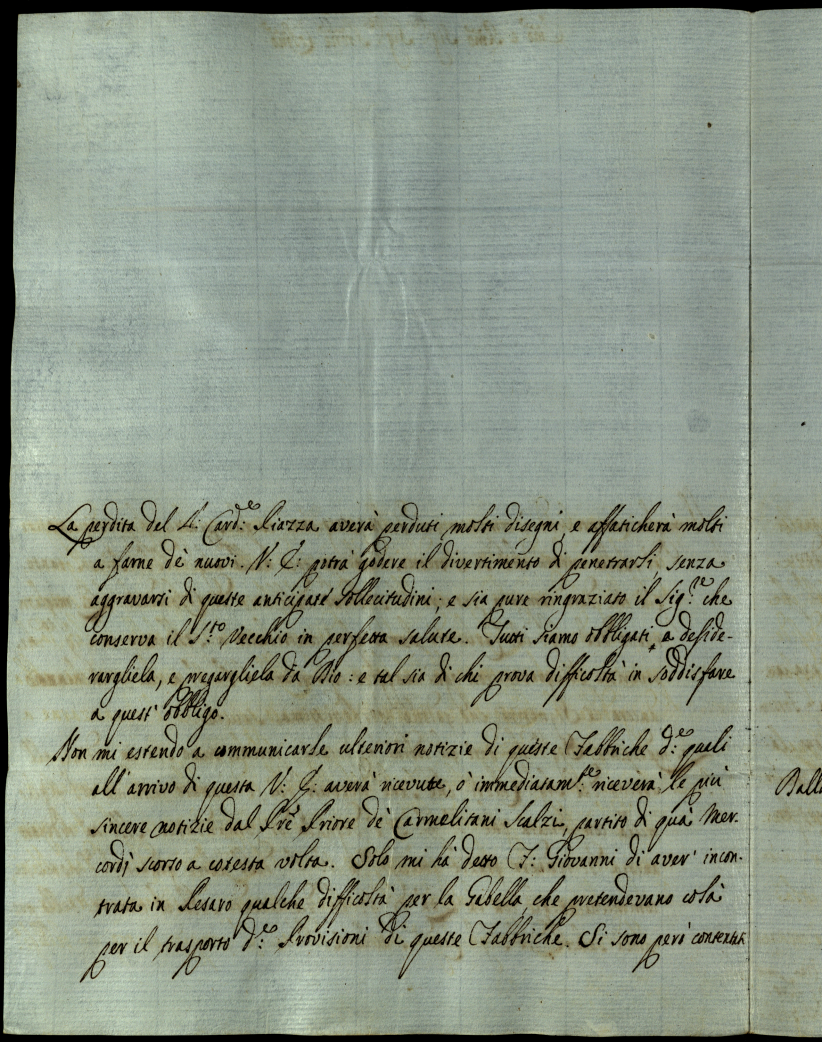 La perdita del S: Card:le Piazza averà perduti molti disegni, e affaticherà molti
a farne dè nuovi. V: E: potrà godere il divertimento di penetrarli, senza
aggravarsi di queste anticipate sollecitudini; e sia pure ringraziato il Sig:re che
conserva il S:to Vecchio in perfetta salute. Tutti siamo obbligati a deside-
rargliela, e pregargliela da Dio: e tal sia di chi prova difficoltà in soddisfare
a quest' obbligo.
Non mi estendo a communicarle ulteriori notizie di queste Fabbriche d:e quali
all'arrivo di questa V: E: averà ricevute, ò immediatam:te riceverà le più
sincere notizie dal Prẽ Priore dè Carmelitani Scalzi, partito di quà Mer-
cordì scorso a cotesta volta. Solo mi hà detto F: Giovanni di aver' incon-
trata in Pesaro qualche difficoltà per la Gabella che pretendevano colà
per il trasporto d:e Provisioni di queste Fabbriche. Si sono però contentati
Balla